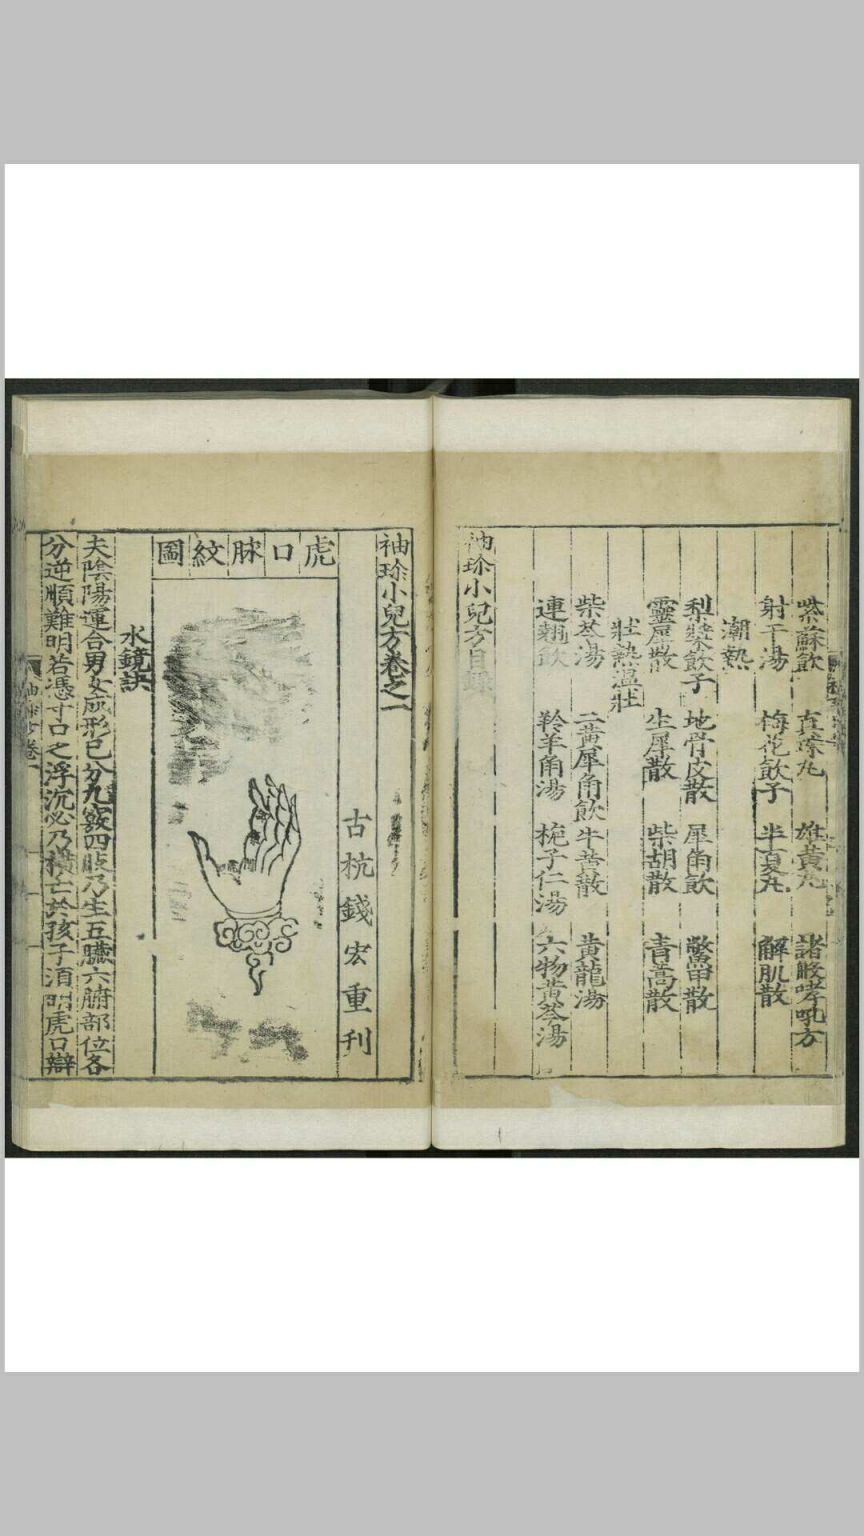 紫蘇飲 直嗓丸 雄黃丸 諸般哮吼方
射干湯 梅花飲子 半夏丸 解肌散
潮熱
梨漿飲子 地骨皮散 犀角飲 驚留散
靈犀散 生犀散 柴胡散 青蒿散
壯熱溫壯
柴苓湯 二黃犀角飲 牛黃散 黃龍湯
連翹飲 羚羊角湯 梔子仁湯 六物黃芩湯
袖珍小兒方目錄
袖珍小兒方卷之一
古杭錢宏重刊
虎口脉紋圖
水鏡訣
夫陰陽運合男女成形已分九竅四肢乃生五臟六腑部位各
分逆順難明若憑寸口之浮沉必乃橫亡於孩子須明虎口辯